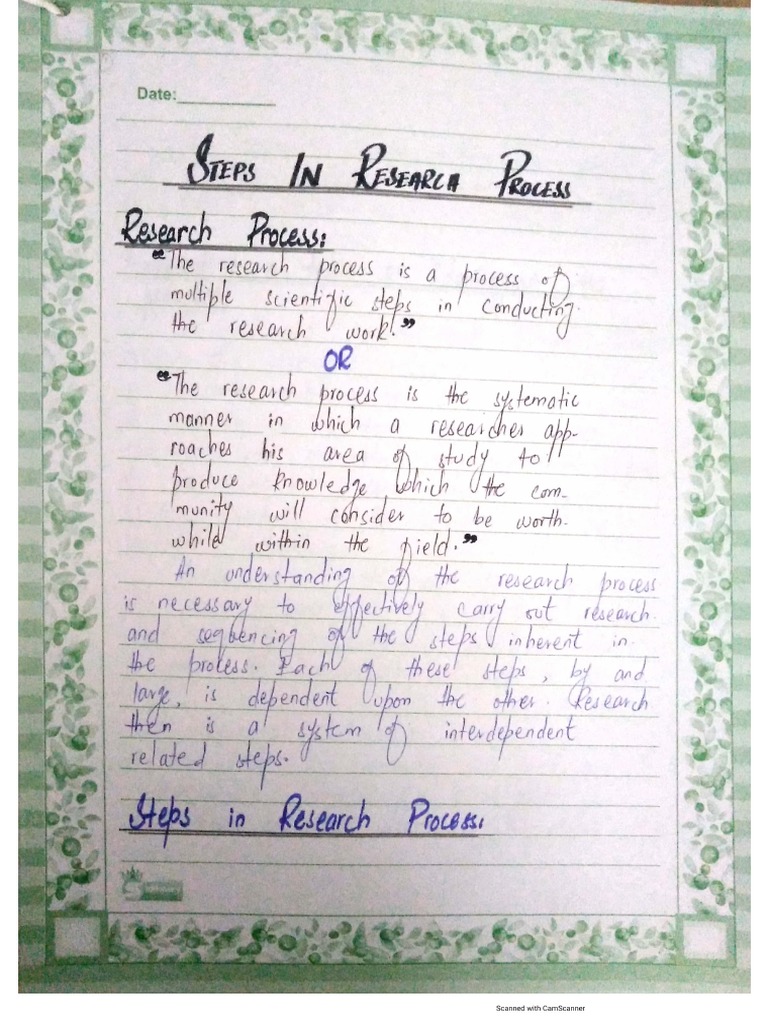 Date:
STEPS IN RESEARCH PROCESS
Research Process:
"The research process is a process of
multiple scientific steps in conducting
the research work."
OR
"The research process is the systematic
manner in which a researcher app-
roaches his area of study to
produce knowledge which the com-
munity will consider to be worth-
while within the field."
An understanding of the research process
is necessary to effectively carry out research
and sequencing of the steps inherent in
the process. Each of these steps, by and
large, is dependent upon the other. Research
then is a system of interdependent
related steps.
Steps in Research Process:
Scanned with CamScanner